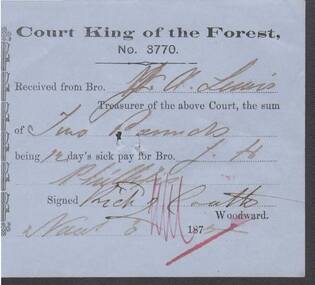 Court King of the Forest,
No. 3770.
Received from Bro. W. A. Lewis
Treasurer of the above Court, the sum
of Two Pounds
being 12 day's sick pay for Bro. J. H.
Phillips
Signed Rich
Woodward.
187